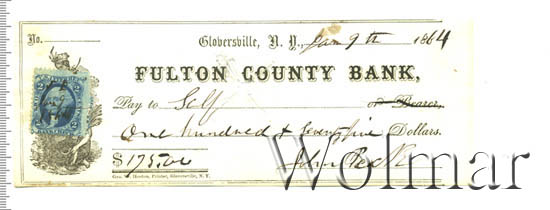 No.
Gloversville, N. Y., Jan 9th 1864
FULTON COUNTY BANK,
Pay to Self or Bearer,
One hundred & seventy five Dollars.
$175.00 John Peck
Geo. W. Heaton, Printer, Gloversville, N. Y.
2 2
Wolmar